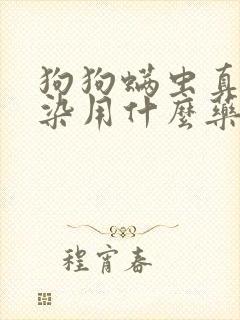 狗狗螨虫真
染用什麼藥
程宵春